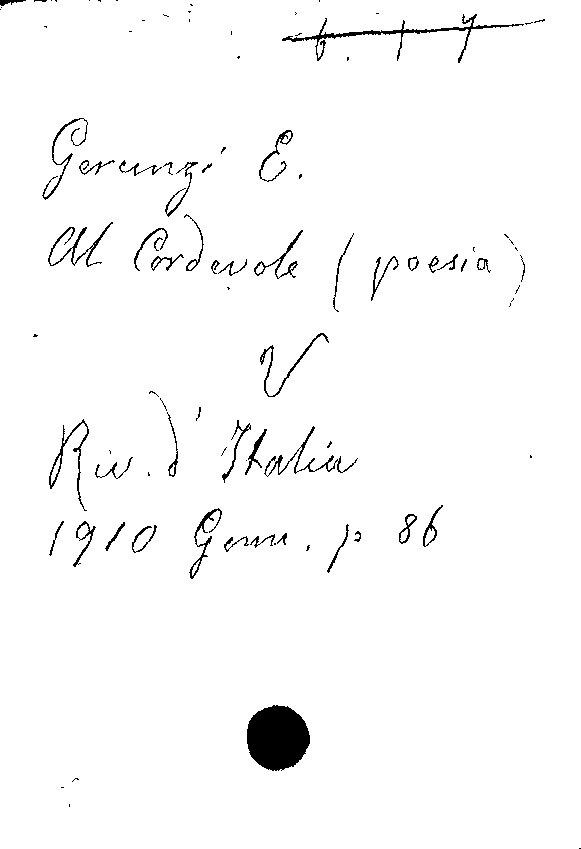 6. 1 7
Gerunzi E.
Al Cordevole (poesia)
V
Riv. d' Italia
1910 Genn. p 86